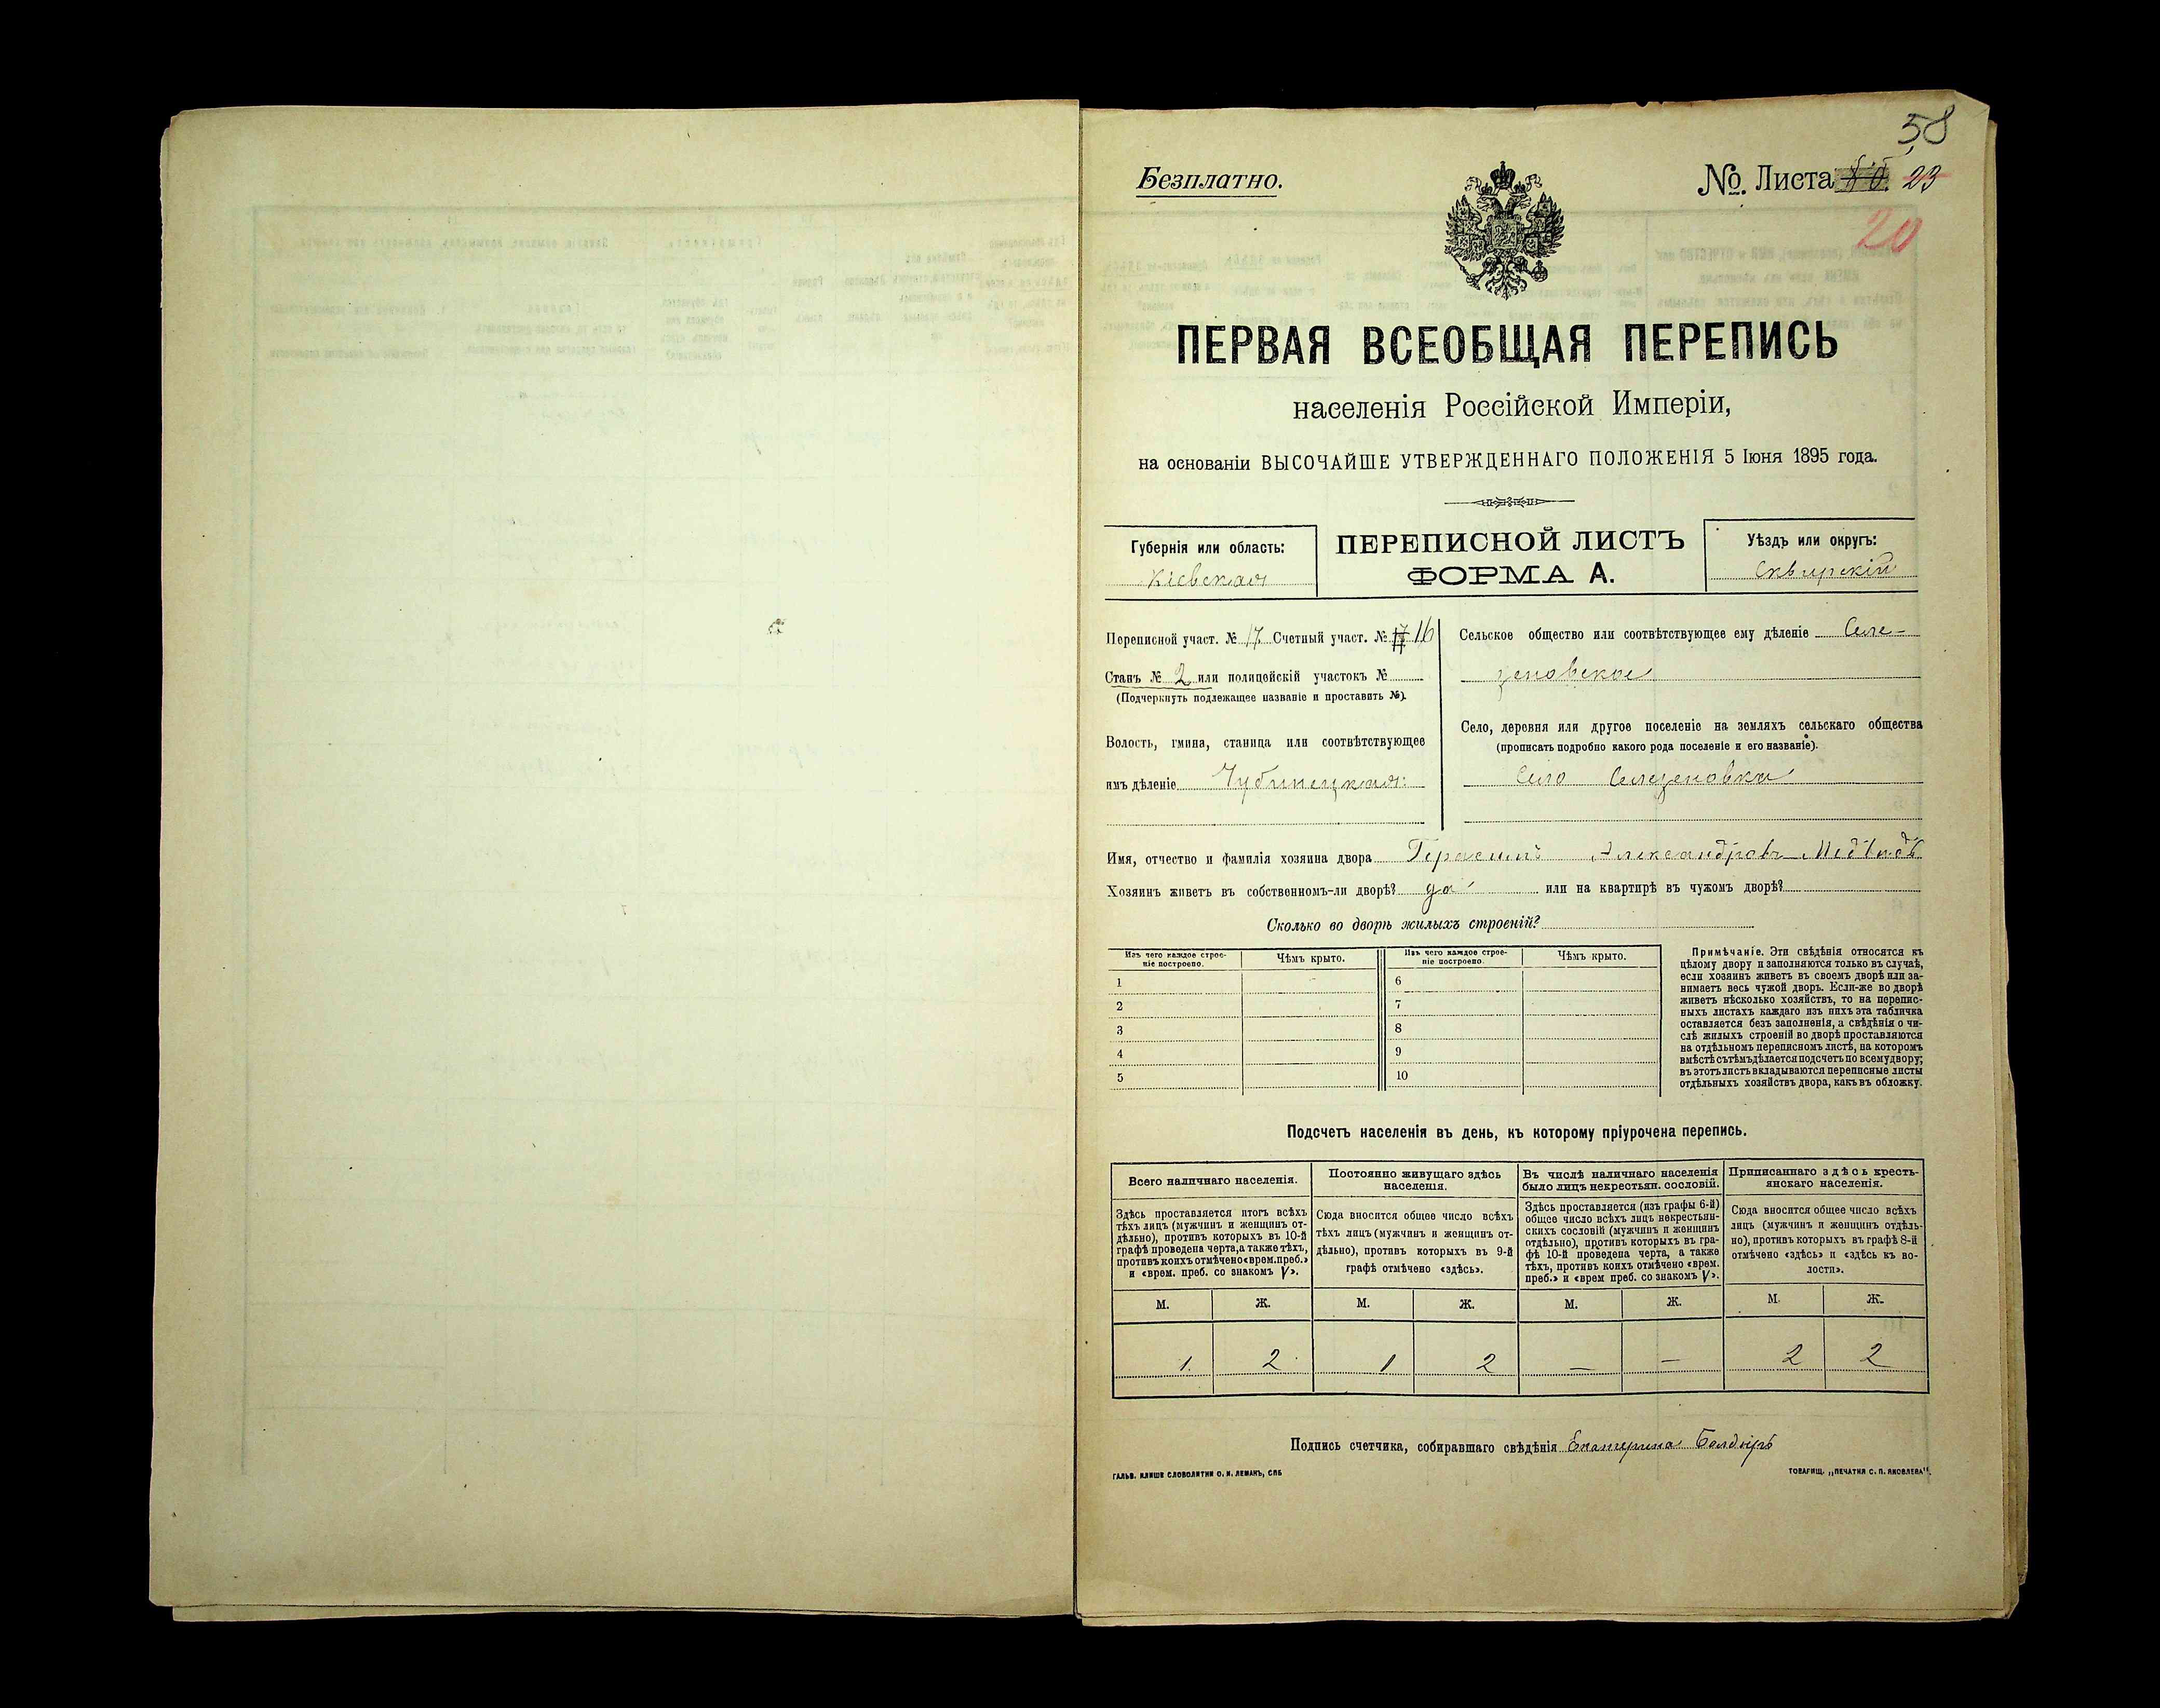 58
Безплатно.
№ Листа 23
20
ПЕРВАЯ ВСЕОБЩАЯ ПЕРЕПИСЬ
населенія Россійской Имперіи,
на основаніи ВЫСОЧАЙШЕ УТВЕРЖДЕННАГО ПОЛОЖЕНІЯ 5 Іюня 1895 года.
Губернія или область:
Кіевская
ПЕРЕПИСНОЙ ЛИСТЪ
ФОРМА А.
Уѣздъ или округъ:
Сквирскій
Переписной участ. № 17 Счетный участ. № 17 16
Станъ № 2 или полицейскій участокъ №
(Подчеркнуть подлежащее названіе и проставить №).
Волость, гмина, станица или соотвѣтствующее
имъ дѣленіе Чубинецкая
Сельское общество или соотвѣтствующее ему дѣленіе Селе-
зеновское
Село, деревня или другое поселеніе на земляхъ сельскаго общества
(прописать подробно какого рода поселеніе и его названіе).
Село Селезеновка
Имя, отчество и фамилія хозяина двора Герасимъ Александровъ Медвидь
Хозяинъ живетъ въ собственномъ-ли дворѣ? да или на квартирѣ въ чужомъ дворѣ?
Сколько во дворѣ жилыхъ строеній?
Изъ чего каждое строе-
ніе построено.
Чѣмъ крыто.
Изъ чего каждое строе-
ніе построено.
Чѣмъ крыто.
1 6
2 7
3 8
4 9
5 10
Примѣчаніе. Эти свѣдѣнія относятся къ
цѣлому двору и заполняются только въ случаѣ,
если хозяинъ живетъ въ своемъ дворѣ или за-
нимаетъ весь чужой дворъ. Если-же во дворѣ
живетъ нѣсколько хозяйствъ, то на перепис-
ныхъ листахъ каждаго изъ нихъ эта табличка
оставляется безъ заполненія, а свѣдѣнія о чи-
слѣ жилыхъ строеній во дворѣ проставляются
на отдѣльномъ переписномъ листѣ, на которомъ
вмѣстѣ сътѣмъ дѣлается подсчетъ по всему двору;
въ этотъ листъ вкладываются переписные листы
отдѣльныхъ хозяйствъ двора, какъ въ обложку.
Подсчетъ населенія въ день, къ которому пріурочена перепись.
Всего наличнаго населенія.
Здѣсь проставляется итогъ всѣхъ
тѣхъ лицъ (мужчинъ и женщинъ от-
дѣльно), противъ которыхъ въ 10-й
графѣ проведена черта, а также тѣхъ,
противъ коихъ отмѣчено «врем. преб.»
и «врем. преб. со знакомъ V».
Постоянно живущаго здѣсь
населенія.
Сюда вносится общее число всѣхъ
тѣхъ лицъ (мужчинъ и женщинъ от-
дѣльно), противъ которыхъ въ 9-й
графѣ отмѣчено «здѣсь».
Въ числѣ наличнаго населенія
было лицъ некрестьян. сословій.
Здѣсь проставляется (изъ графы 6-й)
общее число всѣхъ лицъ некрестьян-
скихъ сословій (мужчинъ и женщинъ
отдѣльно), противъ которыхъ въ гра-
фѣ 10-й проведена черта, а также
тѣхъ, противъ коихъ отмѣчено «врем.
преб.» и «врем преб. со знакомъ V».
Приписаннаго здѣсь кресть-
янскаго населенія.
Сюда вносится общее число всѣхъ
лицъ (мужчинъ и женщинъ отдѣль-
но), противъ которыхъ въ графѣ 8-й
отмѣчено «здѣсь» и «здѣсь къ во-
лости».
М. Ж. М. Ж. М. Ж. М. Ж.
1 2 1 2 — — 2 2
Подпись счетчика, собиравшаго свѣдѣнія Екатерина Болдырь
ГАЛЬВ. КЛИШЕ СЛОВОЛИТНИ О. И. ЛЕМАНЪ, СПБ
ТОВАРИЩ. „ПЕЧАТНЯ С. П. ЯКОВЛЕВА".